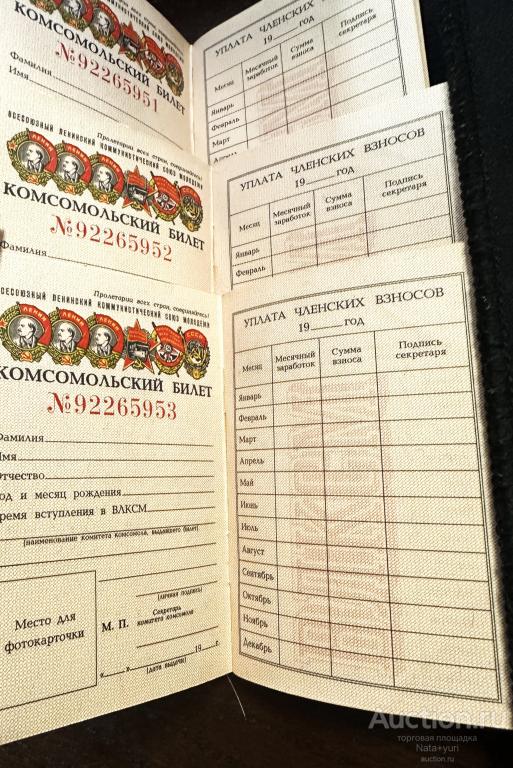 КОМСОМОЛЬСКИЙ БИЛЕТ
№92265951
Фамилия
Имя
УПЛАТА ЧЛЕНСКИХ ВЗНОСОВ
19 год
Месяц Месячный заработок Сумма взноса Подпись секретаря
Январь
Февраль
Март
Пролетарии всех стран, соединяйтесь!
ВСЕСОЮЗНЫЙ ЛЕНИНСКИЙ КОММУНИСТИЧЕСКИЙ СОЮЗ МОЛОДЕЖИ
КОМСОМОЛЬСКИЙ БИЛЕТ
№92265952
Фамилия
УПЛАТА ЧЛЕНСКИХ ВЗНОСОВ
19 год
Месяц Месячный заработок Сумма взноса Подпись секретаря
Январь
Февраль
Пролетарии всех стран, соединяйтесь!
ВСЕСОЮЗНЫЙ ЛЕНИНСКИЙ КОММУНИСТИЧЕСКИЙ СОЮЗ МОЛОДЕЖИ
КОМСОМОЛЬСКИЙ БИЛЕТ
№92265953
Фамилия
Имя
Отчество
Год и месяц рождения
Время вступления в ВЛКСМ
(наименование комитета комсомола, выдавшего билет)
Место для
фотокарточки
(личная подпись)
М. П.
Секретарь
комитета комсомола
«    »    19    г.
(дата выдачи)
УПЛАТА ЧЛЕНСКИХ ВЗНОСОВ
19 год
Месяц Месячный заработок Сумма взноса Подпись секретаря
Январь
Февраль
Март
Апрель
Май
Июнь
Июль
Август
Сентябрь
Октябрь
Ноябрь
Декабрь
Auction.ru
торговая площадка
Nata+yuri
auction.ru